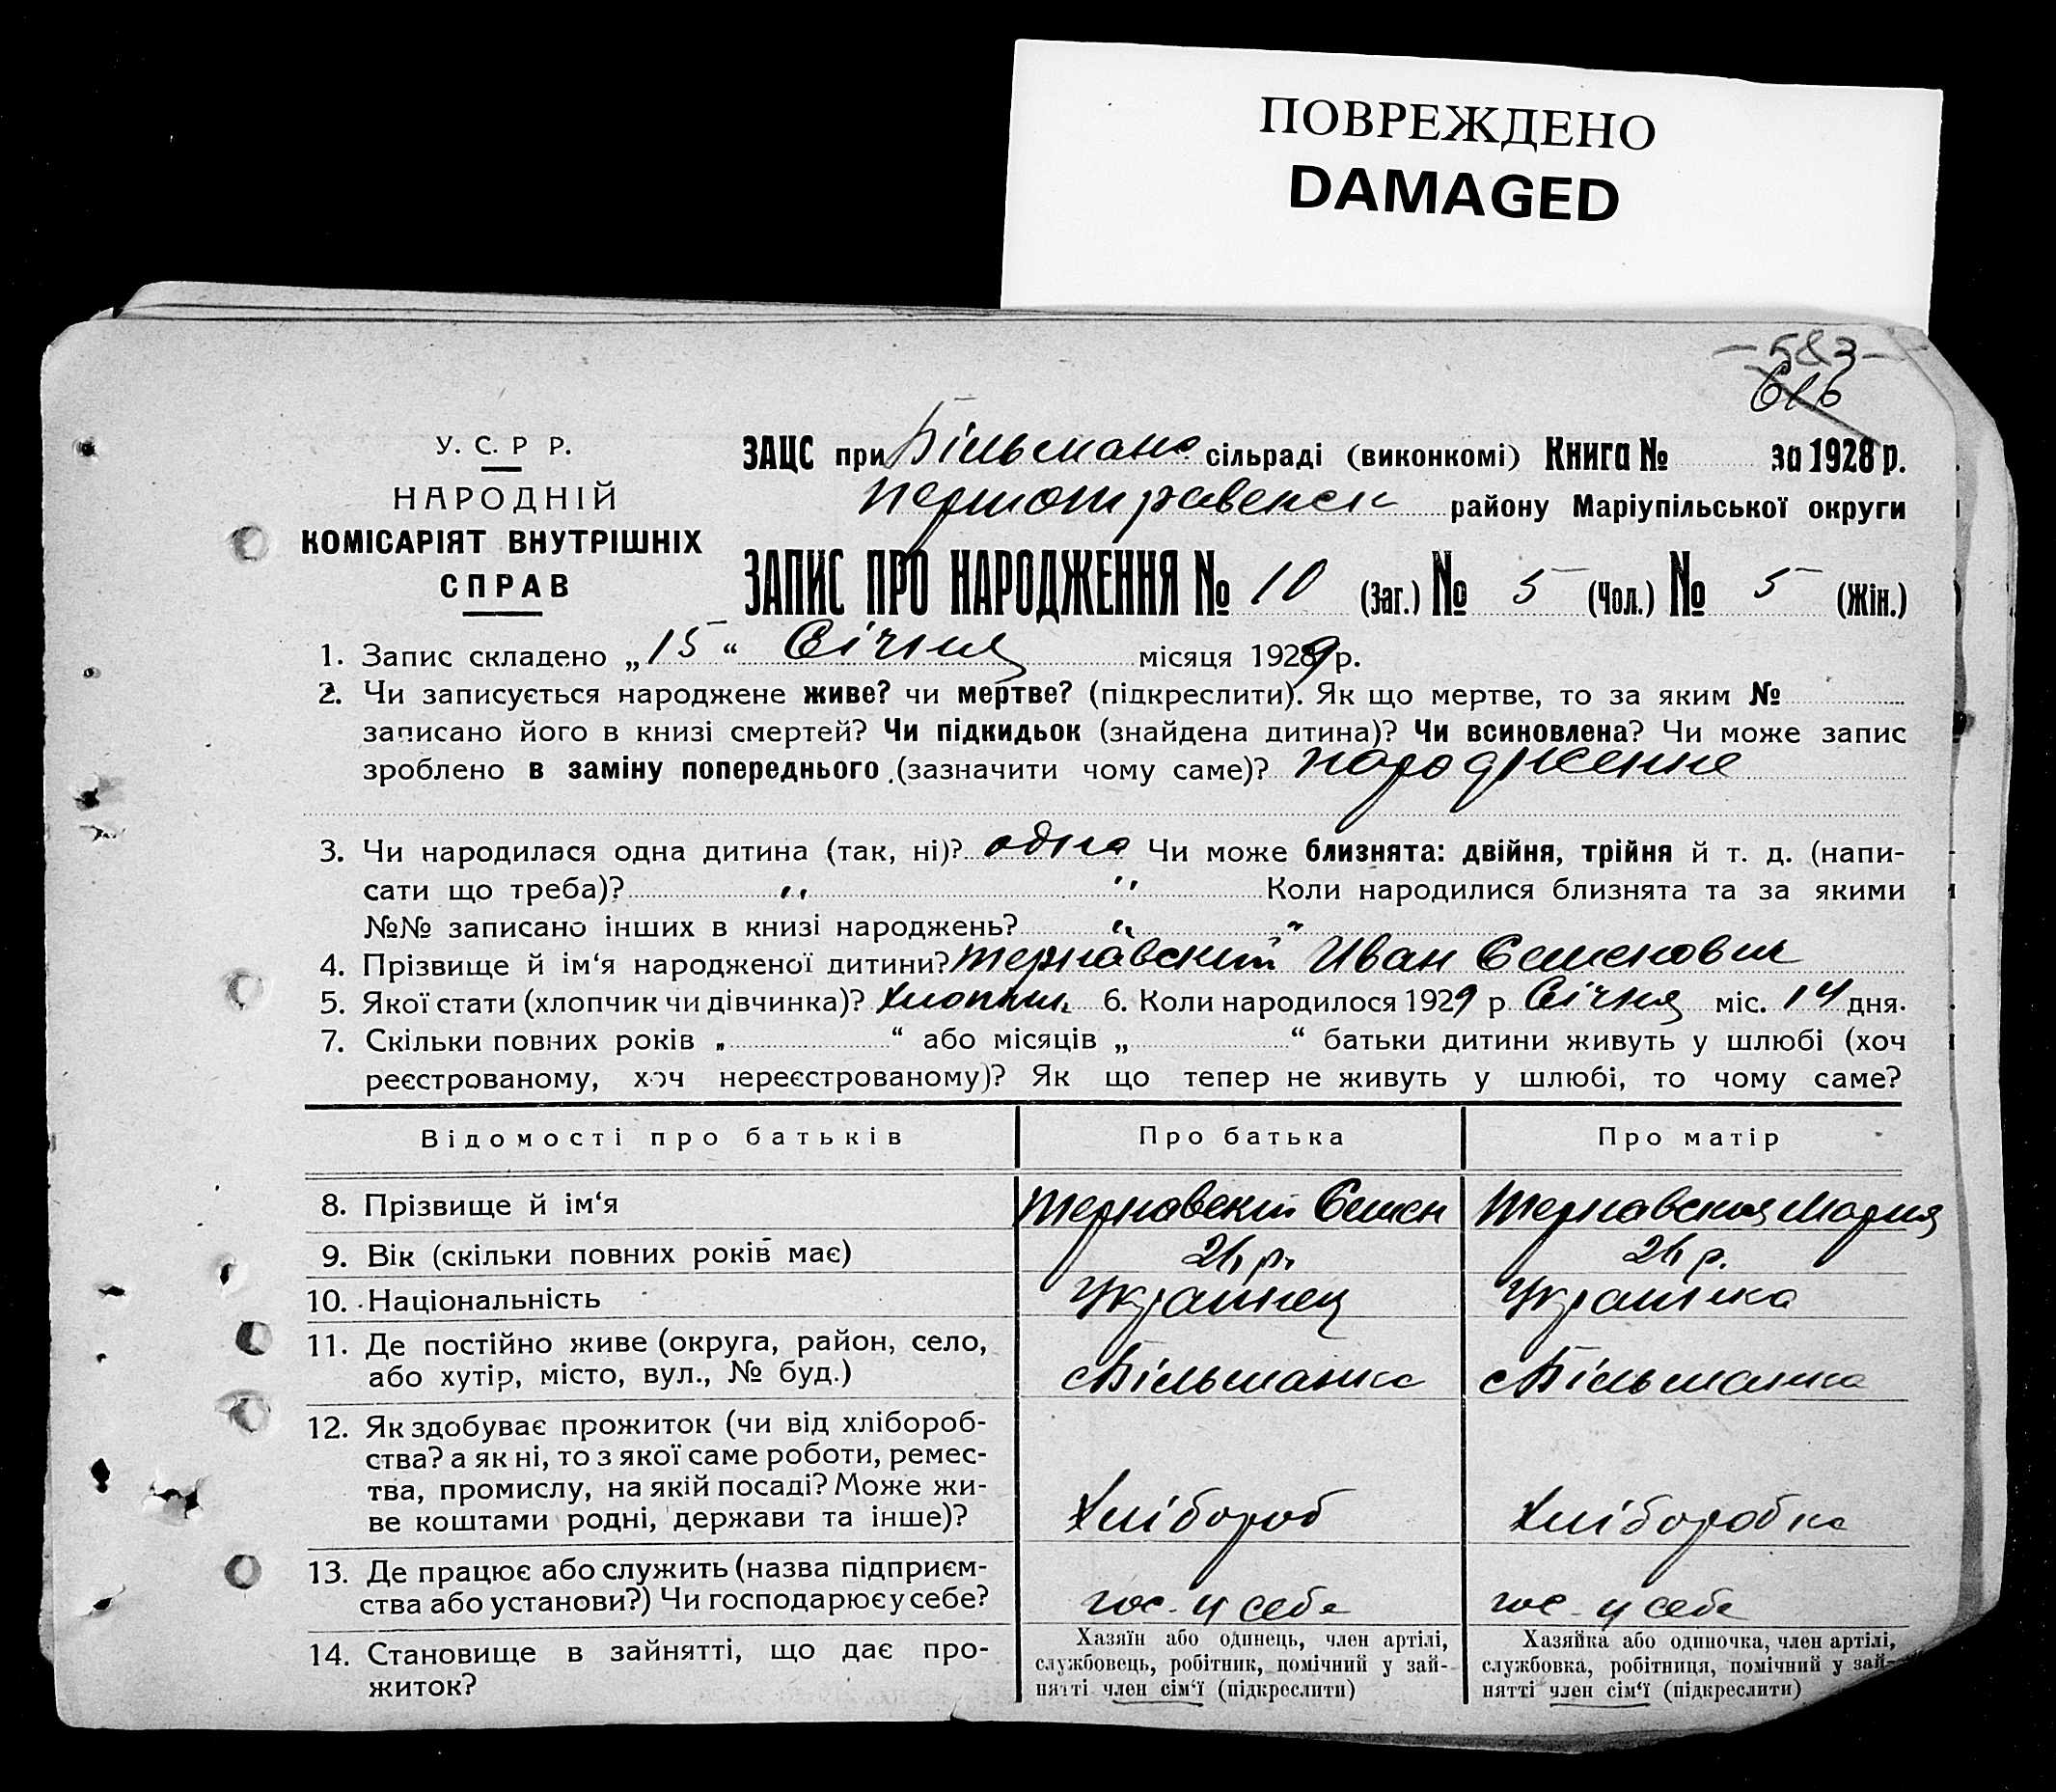 ПОВРЕЖДЕНО
DAMAGED
- 583 -
616
У. С. Р Р.
НАРОДНІЙ
КОМІСАРІЯТ ВНУТРІШНІХ
СПРАВ
ЗАЦС при Більманс. сільраді (виконкомі) Книга № за 1928 р.
Першотравенск району Маріупільської округи
ЗАПИС ПРО НАРОДЖЕННЯ № 10 (Заг.) № 5 (Чол.) № 5 (Жін.)
1. Запис складено „15“ Січня місяця 1929 р.
2. Чи записується народжене живе? чи мертве? (підкреслити). Як що мертве, то за яким №
записано його в книзі смертей? Чи підкидьок (знайдена дитина)? Чи всиновлена? Чи може запис
зроблено в заміну попереднього (зазначити чому саме)? народження
3. Чи народилася одна дитина (так, ні)? одна Чи може близнята: двійня, трійня й т. д. (напи-
сати що треба)? „ „ Коли народилися близнята та за якими
№№ записано інших в книзі народжень? „ „
4. Прізвище й ім‘я народженої дитини? Терновский Иван Семенович
5. Якої стати (хлопчик чи дівчинка)? Хлопчик 6. Коли народилося 1929 р Січня міс. 14 дня.
7. Скільки повних років „ “ або місяців „ “ батьки дитини живуть у шлюбі (хоч
реєстрованому, хоч нереєстрованому)? Як що тепер не живуть у шлюбі, то чому саме?
Відомості про батьків Про батька Про матір
8. Прізвище й ім‘я Терновский Семен Терновская Мария
9. Вік (скільки повних років має) 26 р. 26 р.
10. Національність Українец Українка
11. Де постійно живе (округа, район, село,
або хутір, місто, вул., № буд.) с Більманка с Більманка
12. Як здобуває прожиток (чи від хлібороб-
ства? а як ні, то з якої саме роботи, ремес-
тва, промислу, на якій посаді? Може жи-
ве коштами родні, держави та інше)? Хлібороб Хліборобка
13. Де працює або служить (назва підприєм-
ства або установи?) Чи господарює у себе? гос - у себе гос - у себе
14. Становище в зайнятті, що дає про-
житок?
Хазяїн або одинець, член артілі,
службовець, робітник, помічний у зай-
нятті член сім‘ї (підкреслити)
Хазяйка або одиночка, член артілі,
службовка, робітниця, помічний у зай-
нятті член сім‘ї (підкреслити)